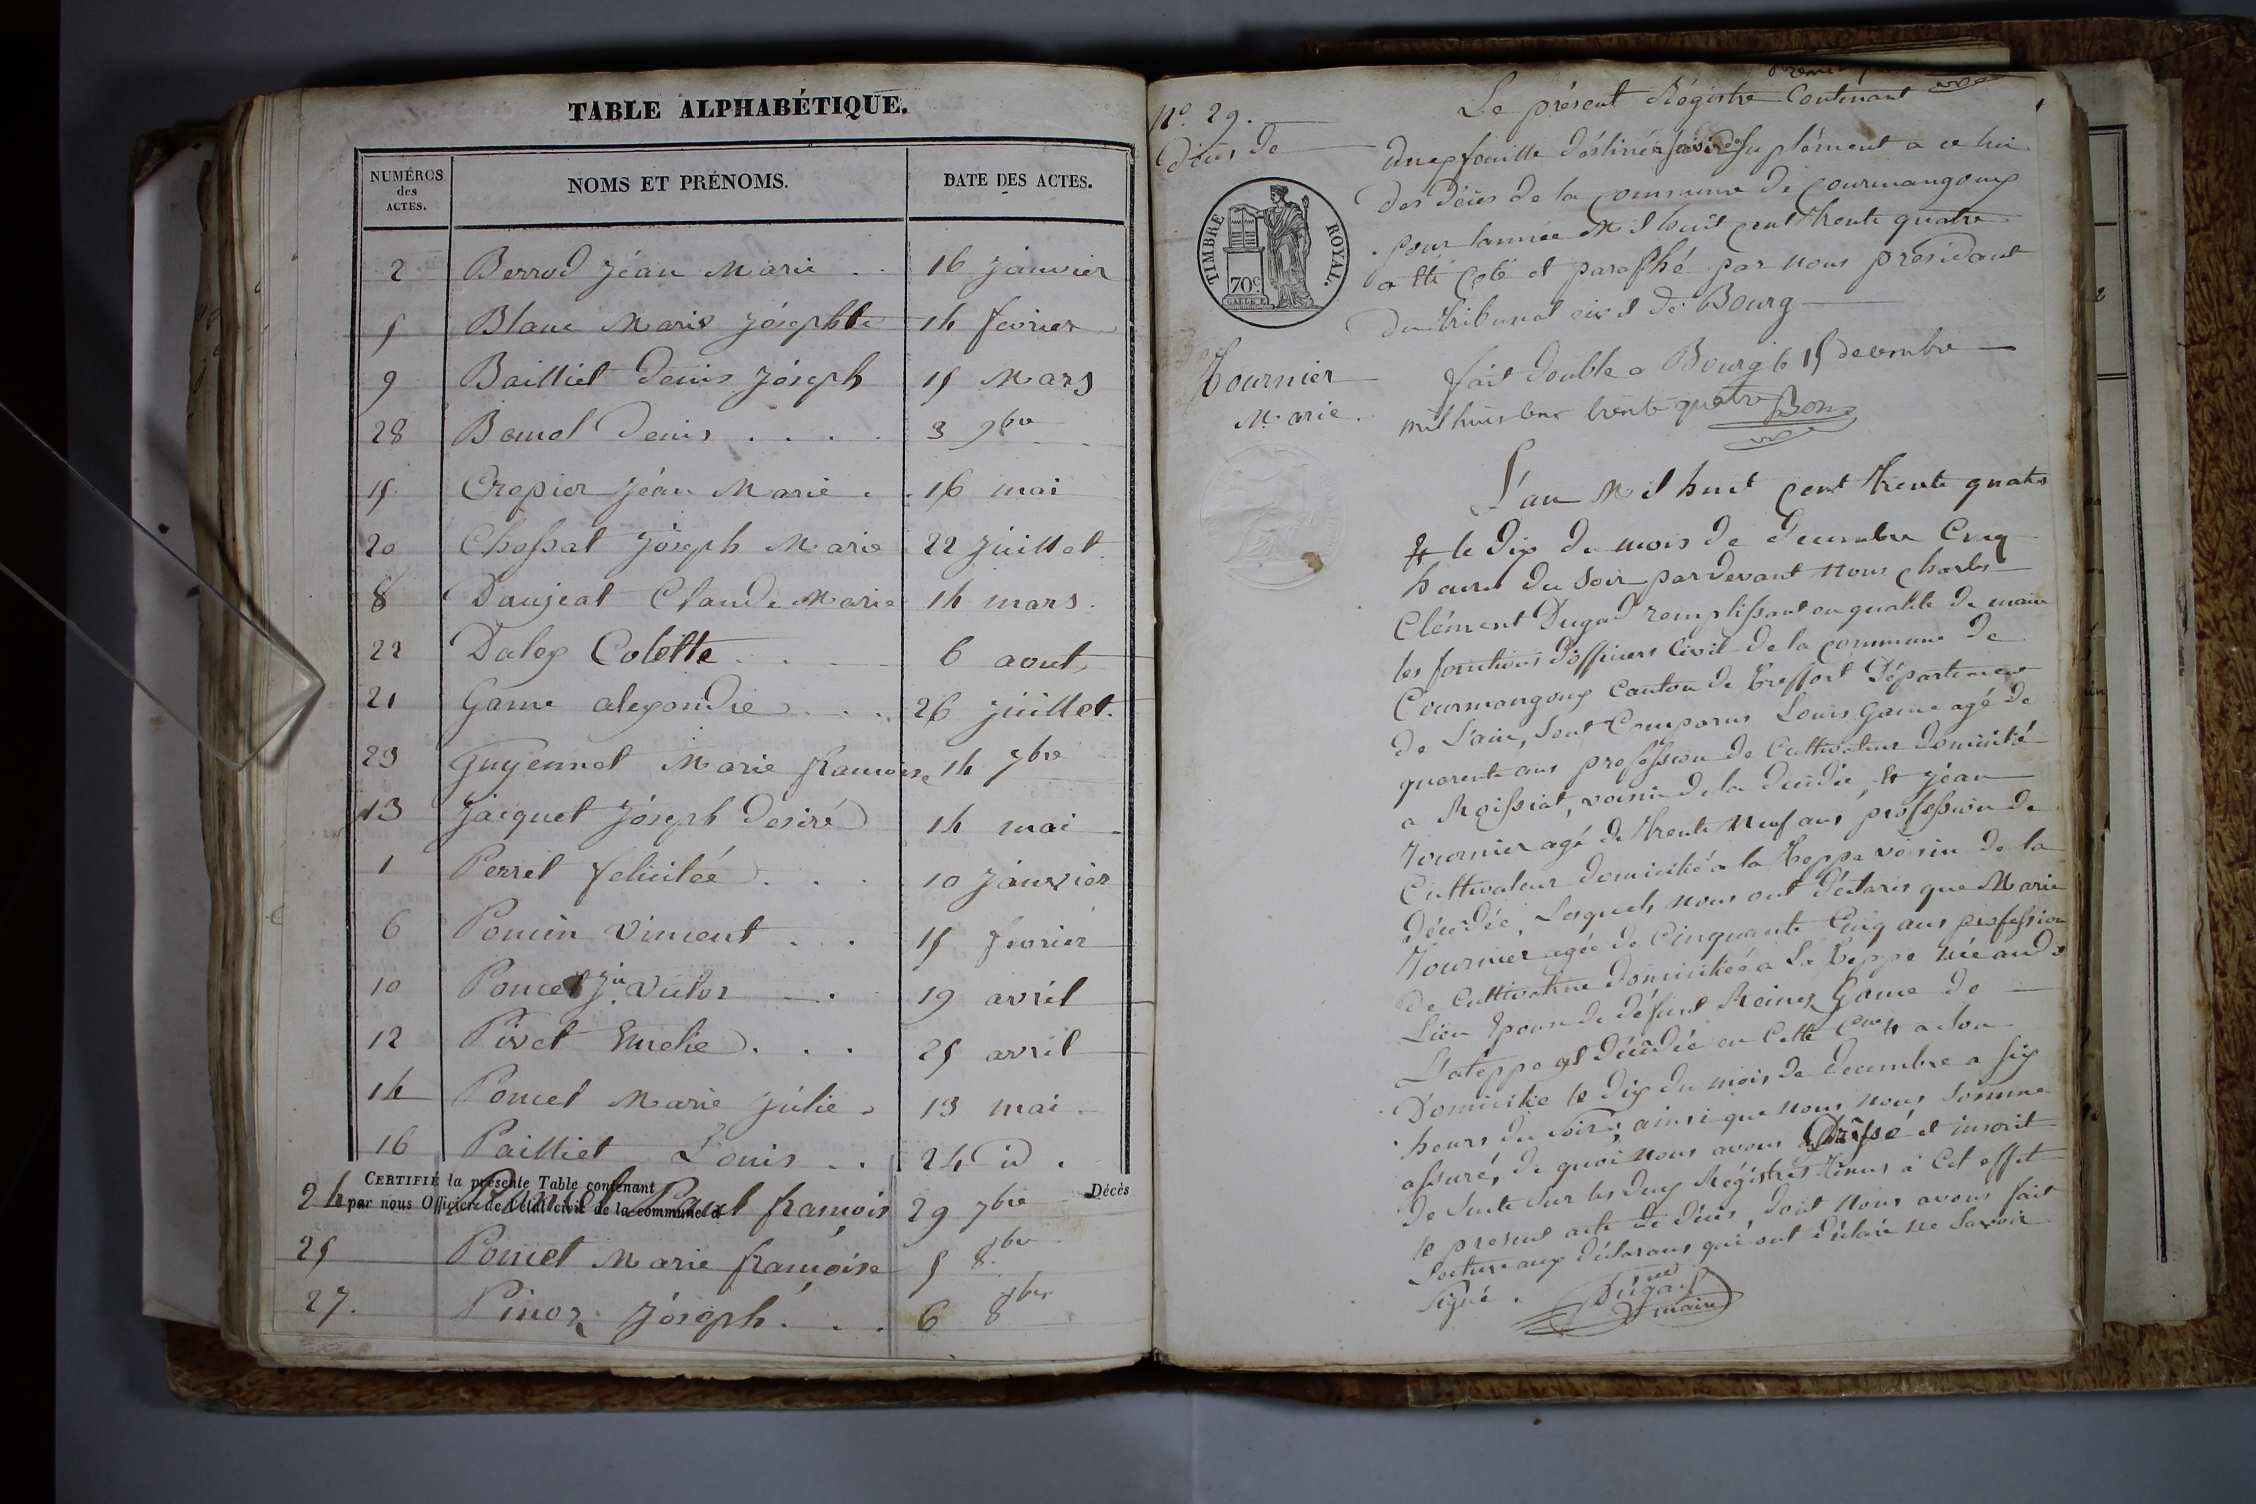 TABLE ALPHABÉTIQUE.
NUMÉROS des ACTES. NOMS ET PRÉNOMS. DATE DES ACTES.
2 Berrod Jéan Marie . . 16 Janvier
5 Blanc Marie Joséphte 14 fevrier
9 Bailliet Denis Jóseph 15 Mars
28 Bomol Denis . . . . 3 9bre
15 Crepier Jéan Marie . 16 mai
20 Chossat Jóseph Marie 22 Juillet
8 Daujeat Claude Marie 14 mars.
22 Dalex Colette . . 6 aout
21 Game alexandre . . . 26 juillet.
23 Guyennet Marie francoise 14 7bre
13 Jacquet Jóseph desiré 14 mai
1 Perret felicitée . . . 10 Janvier
6 Poncin Vincent . . . 15 fevrier
10 Poncet Jn Victor . 19 avril
12 Pivet Emelie . . . 25 avril
14 Poncet Marie Julie . 13 mai .
16 Pailliet Louis . . 24 id .
CERTIFIÉ la présente Table contenant Décès
par nous Officier de l'état civil de la commune d
24 Poncet Paul francois 29 7bre
25 Poncet Marie francoise 5 8bre
27. Pinoz Jóseph . . . 6 8bre
No. 29.
Décès de
TIMBRE ROYAL.
70c
Tournier
Marie .
Le présent Régistre Contenant
une feuille déstinée a servir de suplément a ce lui
des décès de la commune de Courmangoux
pour l'année Mil huit Cent trente quatre
a été Coté et paraphé par nous président
du tribunal civil de Bourg
fait double a Bourg le 15 decembre
mil huit cent trente quatre
L'an Mil huit Cent trente quatre
et le dix du mois de decembre Cinq
heures du soir pardevant nous Charles
Clément Dugad remplissant en qualité de maire
les fonctions d'officiers Civil de la commune de
Courmangoux Canton de Treffort Département
de L'ain, sont Comparus Louis Game agé de
quarente ans profession de Cultivateur domicilié
a Roissiat, voisin de la décédée, et Jéan
Tournier agé de trente neuf ans profession de
Cultivateur domicilié a la Teppe voisin de la
décédée, Lesquels nous ont déclaré que Marie
Tournier agée de Cinquante Cinq ans profession
de Cultivatrice domiciliée a La Teppe née au dt
Lieu Epouse de défunt Reinez Game de
Lateppe est décédée en Cette Cne et a son
Domicile le dix du mois de decembre a six
heures du soir, ainsi que nous nous somme
assuré, de quoi nous avons dréssé et inscrit
de suite sur les deux Régistres tenus a Cet effet
le present acte de décès, dont nous avons fait
Lecture aux déclarans qui ont déclaré ne savoir
signé .
Dugad
maire